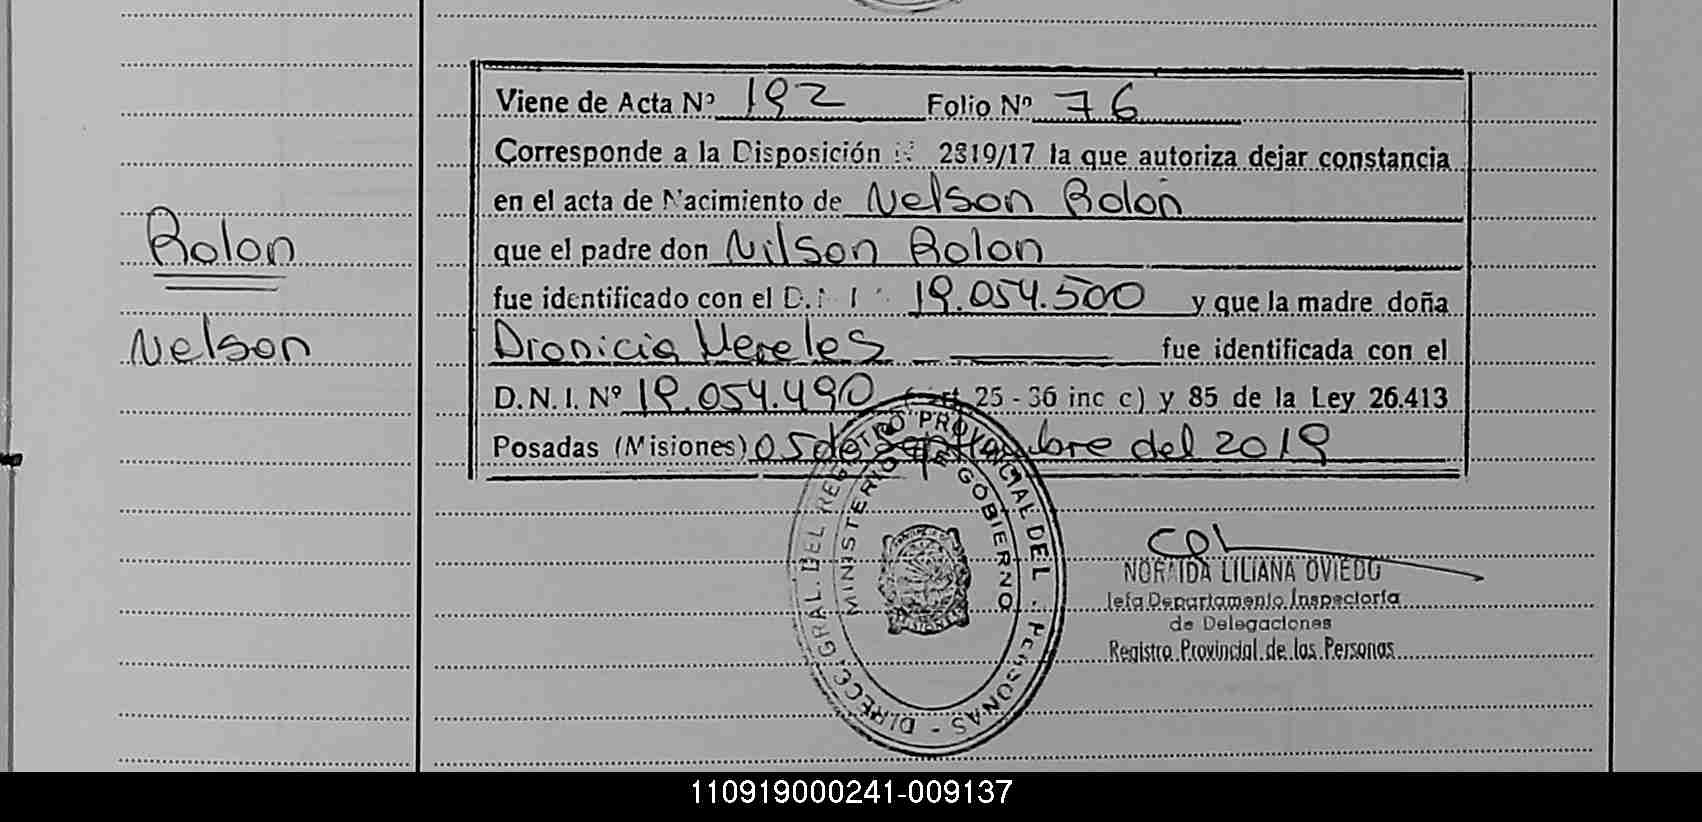 Viene de Acta Nº 192 Folio Nº 76
Corresponde a la Disposición Nº 2819/17 la que autoriza dejar constancia
en el acta de Nacimiento de Nelson Rolón
que el padre don Nilson Rolon
fue identificado con el D.N.I. 19.054.500 y que la madre doña
Dionicia Mereles fue identificada con el
D.N.I. Nº 19.054.490 (art. 25 - 36 inc c) y 85 de la Ley 26.413
Posadas (Misiones) 05 de septiembre del 2019
Rolon
Nelson
DIRECC. GRAL. DEL REGISTRO PROVINCIAL DEL - PERSONAS -
MINISTERIO DE GOBIERNO
MISIONES
NORAIDA LILIANA OVIEDO
Jefa Departamento Inspectoría
de Delegaciones
Registro Provincial de las Personas
110919000241-009137